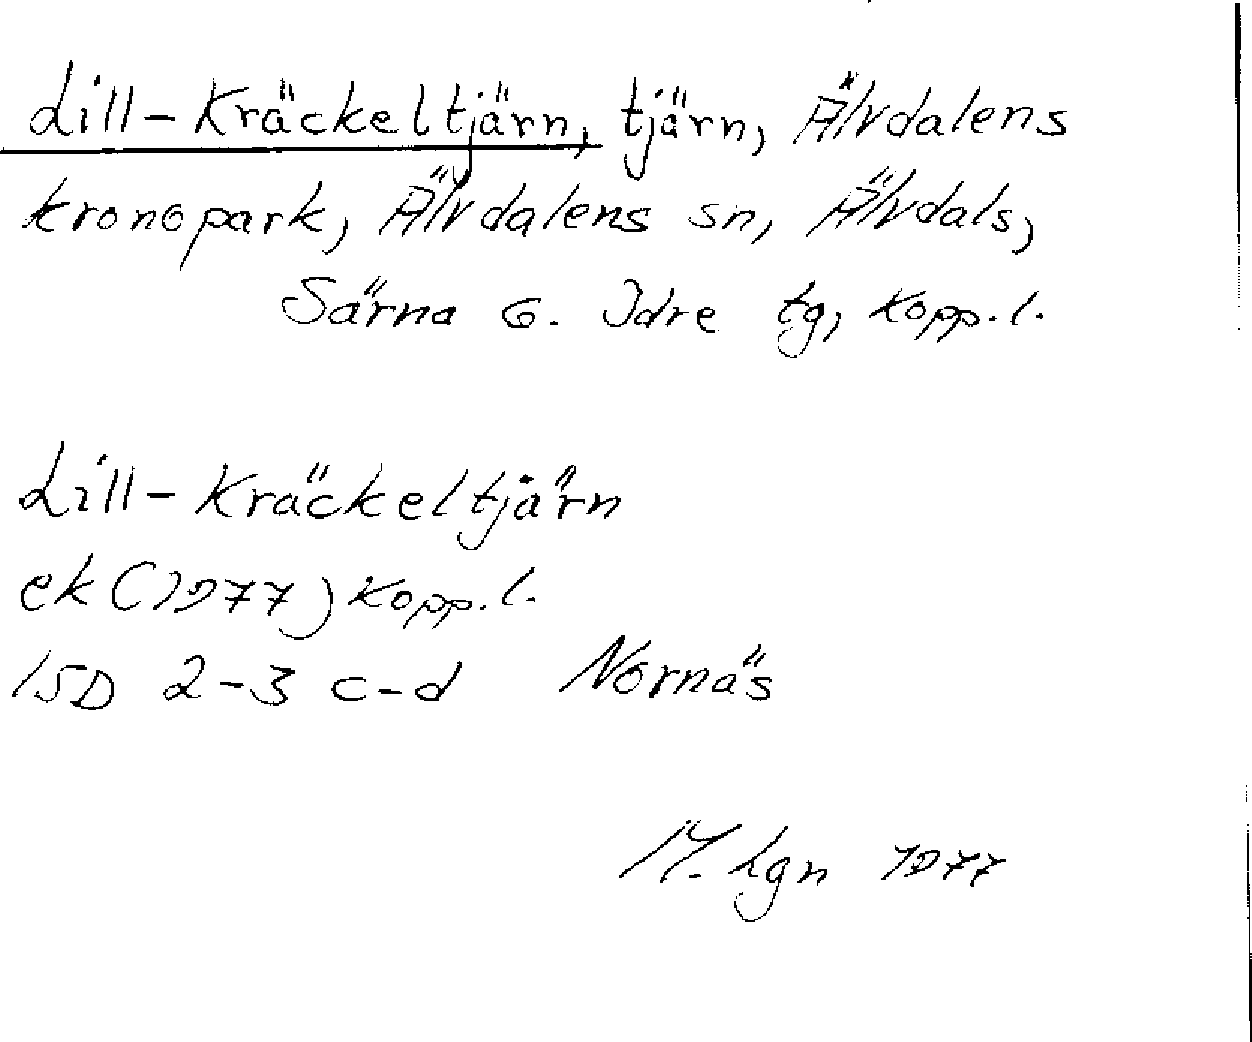 Lill-Kräckeltjärn, tjärn, Älvdalens
kronopark, Älvdalens sn, Älvdals,
Särna o. Idre tg, Kopp. l.
Lill-Kräckeltjärn
ek (1977) Kopp. l.
15D 2-3 c-d Nornäs
M. Lgn 1977